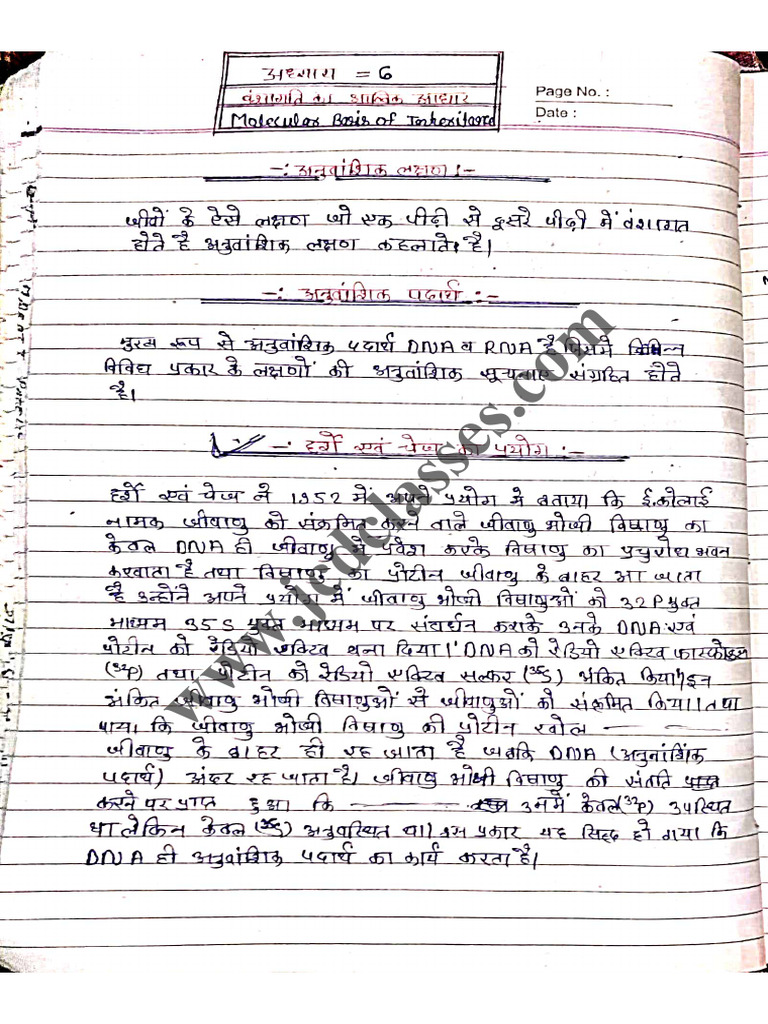 अध्याय = 6
वंशागति का आण्विक आधार
Molecular Basis of Inheritance
Page No. :
Date :
-: अनुवांशिक लक्षण :-
जीवों के ऐसे लक्षण जो एक पीढी से दूसरे पीढी में वंशागत
होते है अनुवांशिक लक्षण कहलाते है।
-: अनुवांशिक पदार्थ :-
मुख्य रूप से अनुवांशिक पदार्थ DNA व RNA है जिसमें विभिन्न
विविध प्रकार के लक्षणों की अनुवांशिक सूचनाए संग्रहित होते
है।
-: हर्शे एवं चेज का प्रयोग :-
हर्शे एवं चेज ने 1952 में अपने प्रयोग में बताया कि ई.कोलाई
नामक जीवाणु को संक्रमित करने वाले जीवाणु भोजी विषाणु का
केवल DNA ही जीवाणु में प्रवेश करके विषाणु का
करवाता है तथा विषाणु का प्रोटीन जीवाणु के बाहर आ जाता
है उन्होंने अपने प्रयोग में जीवाणु भोजी विषाणुओं को 32P युक्त
माध्यम 35S युक्त माध्यम पर संवर्धन कराके उनके DNA एवं
प्रोटीन को रेडियो एक्टिव बना दिया। DNA को रेडियो एक्टिव फास्फोरस
(32P) तथा प्रोटीन को रेडियो एक्टिव सल्फर (35S) अंकित किया। इन
अंकित जीवाणु भोजी विषाणुओं से जीवाणुओं को संक्रमित किया। तथा
पाया कि जीवाणु भोजी विषाणु की प्रोटीन खोल
जीवाणु के बाहर ही रह जाता है जबकि DNA (अनुवांशिक
पदार्थ) अंदर रह जाता है। जीवाणु भोजी विषाणु की संतति
करने पर प्राप्त हुआ कि उनमें केवल (32P) उपस्थित
था लेकिन केवल (35S) अनुपस्थित था। इस प्रकार यह सिद्ध हो गया कि
DNA ही अनुवांशिक पदार्थ का कार्य करता है।
www.jcdclasses.com